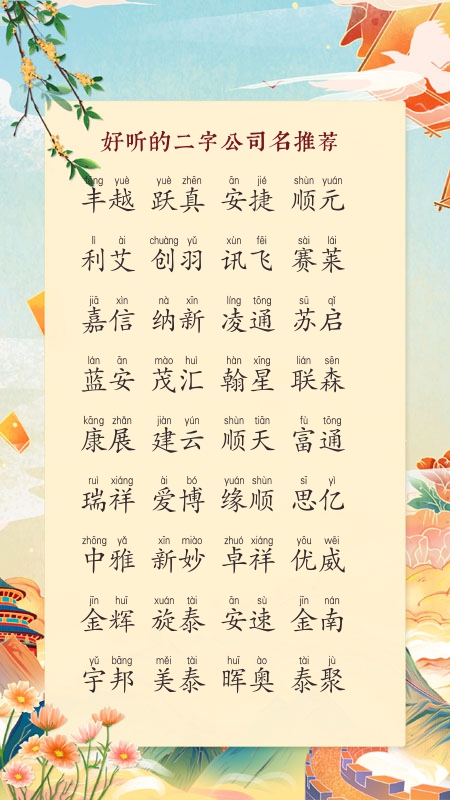 好听的二字公司名推荐
fēng yuè yuè zhēn ān jié shùn yuán
丰越 跃真 安捷 顺元
lì ài chuàng yǔ xùn fēi sài lái
利艾 创羽 讯飞 赛莱
jiā xìn nà xīn líng tōng sū qǐ
嘉信 纳新 凌通 苏启
lán ān mào huì hàn xīng lián sēn
蓝安 茂汇 翰星 联森
kāng zhǎn jiàn yún shùn tiān fù tōng
康展 建云 顺天 富通
ruì xiáng ài bó yuán shùn sī yì
瑞祥 爱博 缘顺 思亿
zhōng yǎ xīn miào zhuó xiáng yōu wēi
中雅 新妙 卓祥 优威
jīn huī xuán tài ān sù jīn nán
金辉 旋泰 安速 金南
yǔ bāng měi tài huī ào tài jù
宇邦 美泰 晖奥 泰聚